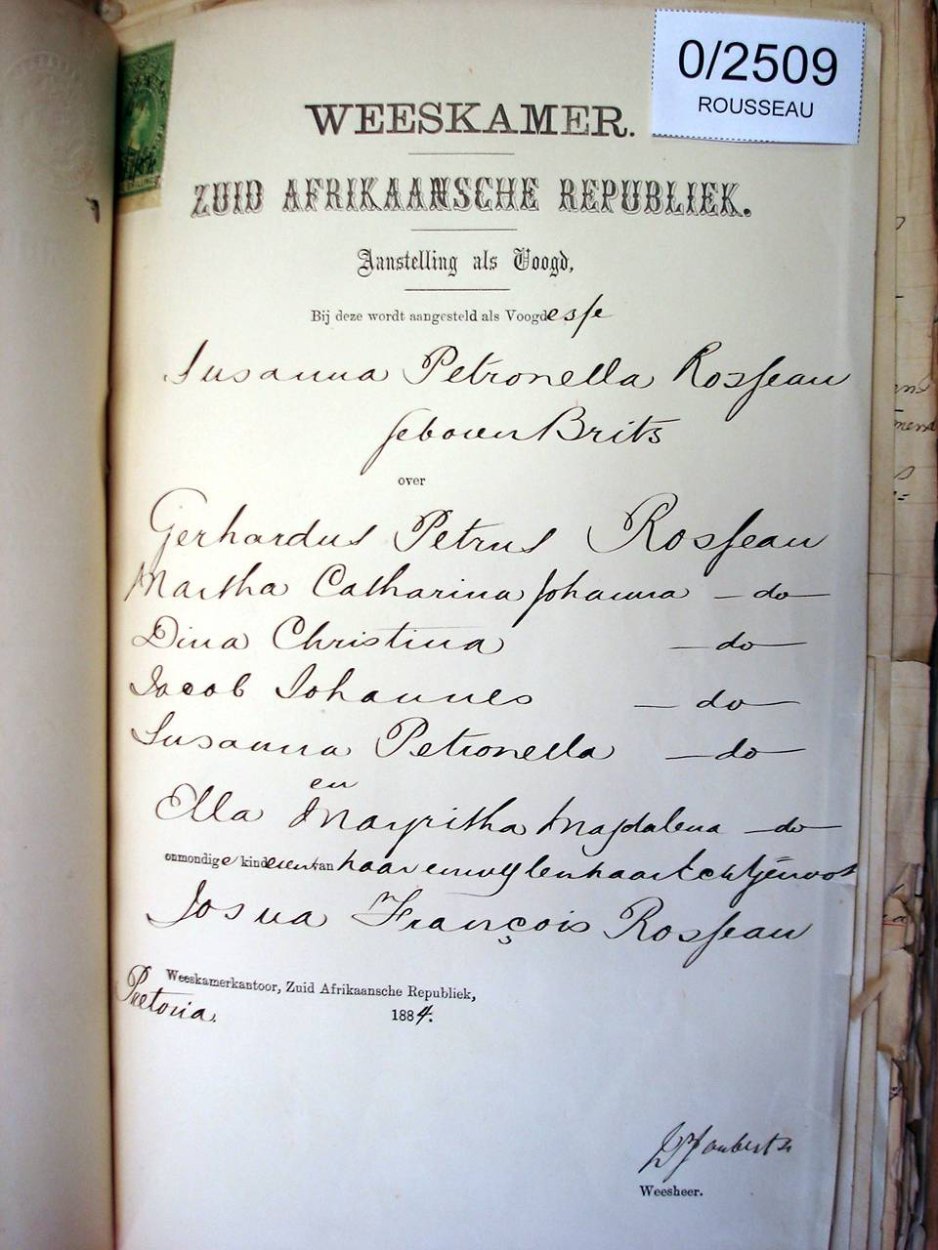 0/2509
ROUSSEAU
WEESKAMER.
ZUID AFRIKAANSCHE REPUBLIEK.
Aanstelling als Voogd,
Bij deze wordt aangesteld als Voogdesse
Susanna Petronella Rosseau
geboren Brits
over
Gerhardus Petrus Rosseau
Martha Catharina Johanna — do —
Dina Christina — do —
Jacob Johannes — do —
Susanna Petronella — do —
en
Ella Magritha Magdalena — do —
onmondige kinderen van haar en wylen haar Echtgenoot
Josua François Rosseau
Weeskamerkantoor, Zuid Afrikaansche Republiek,
Pretoria. 1884.
Joubert
Weesheer.